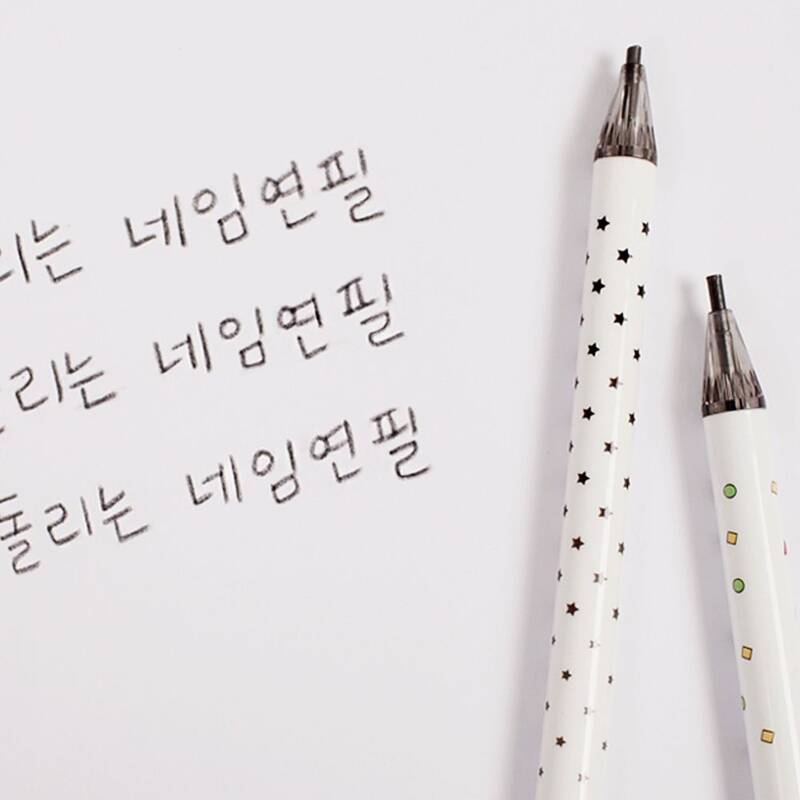 리는 네임연필
리는 네임연필
돌리는 네임연필